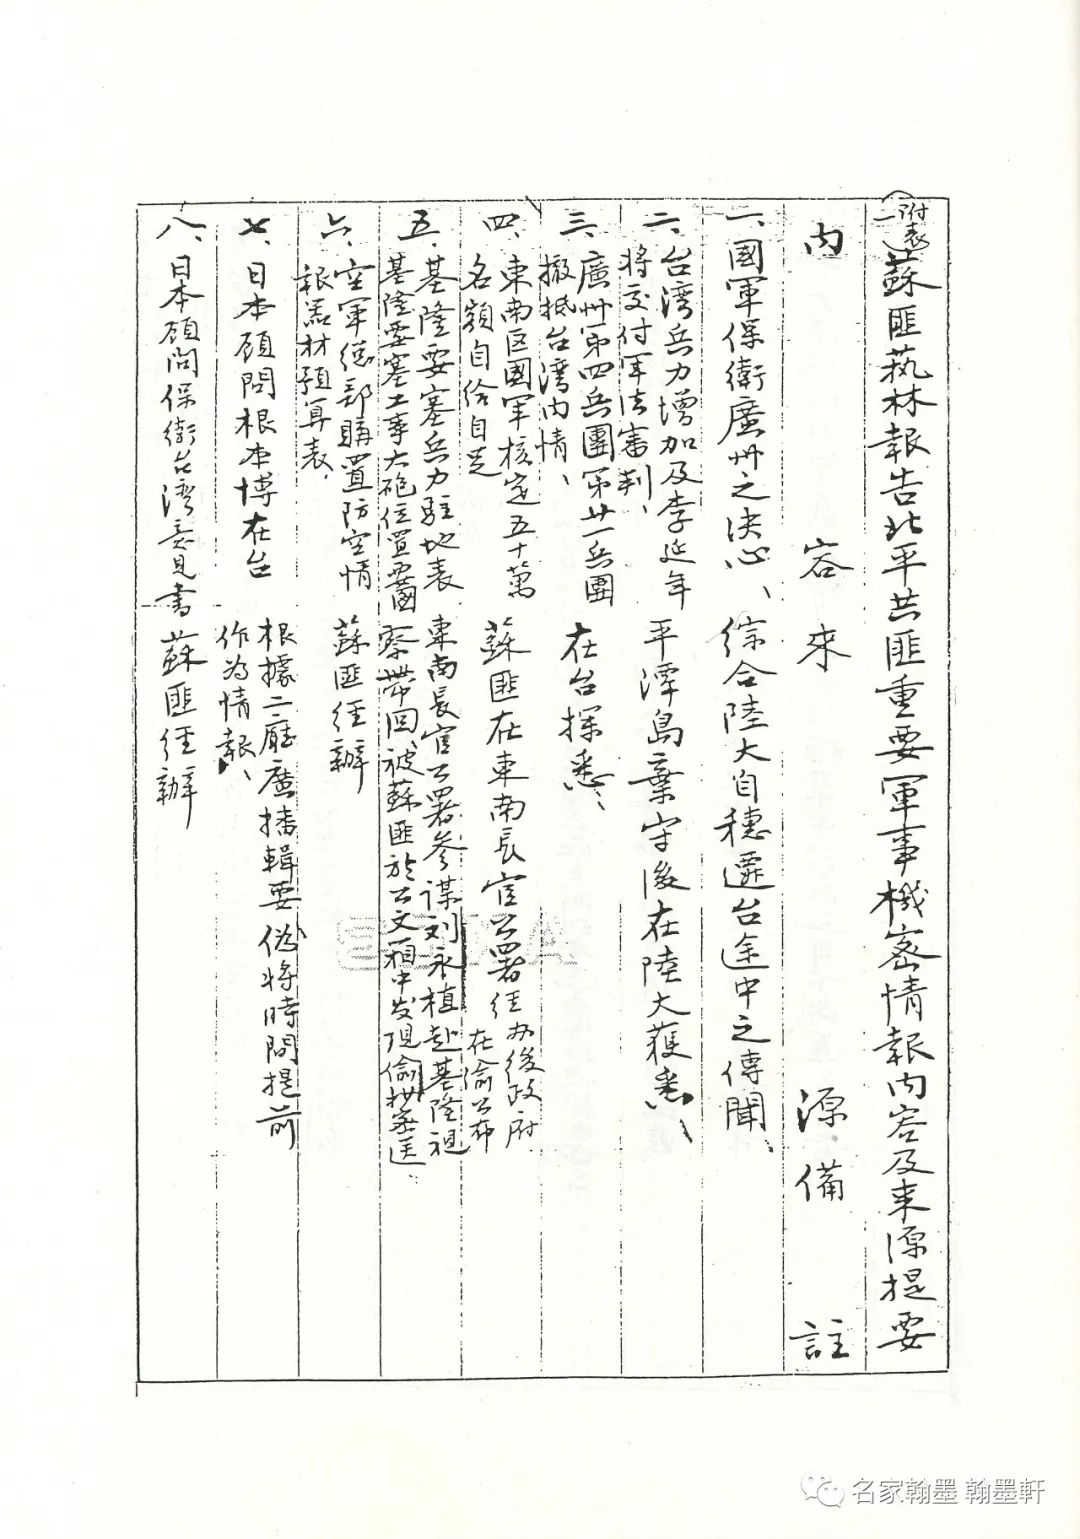 附表(二)
蘇匪藝林報告北平共匪重要軍事機密情報內容及来源提要
內容 来源 備註
一、國軍保衛廣州之決心、
綜合陸大自穗遷台途中之傳聞、
二、台湾兵力增加及李延年
将交付軍法審判、
平潭島棄守後在陸大獲悉、
三、廣州第四兵團第廿一兵團
撤抵台湾內情、
在台探悉、
四、東南区國軍核定五十萬
名額自给自足
蘇匪在東南長官公署任办後政府
在渝公布
五、基隆要塞兵力駐地表
基隆要塞工事大砲位置要圖
東南長官公署参谋刘永植赴基隆視
察带回、被蘇匪於公文箱中发現偷抄彙送、
六、空軍總部購置防空情
報器材預算表、
蘇匪经辦
七、日本顧問根本博在台
根據二廳廣播輯要偽将時間提前
作為情報、
八、日本顧問保衛台湾意見書
蘇匪经辦
名家翰墨 翰墨軒